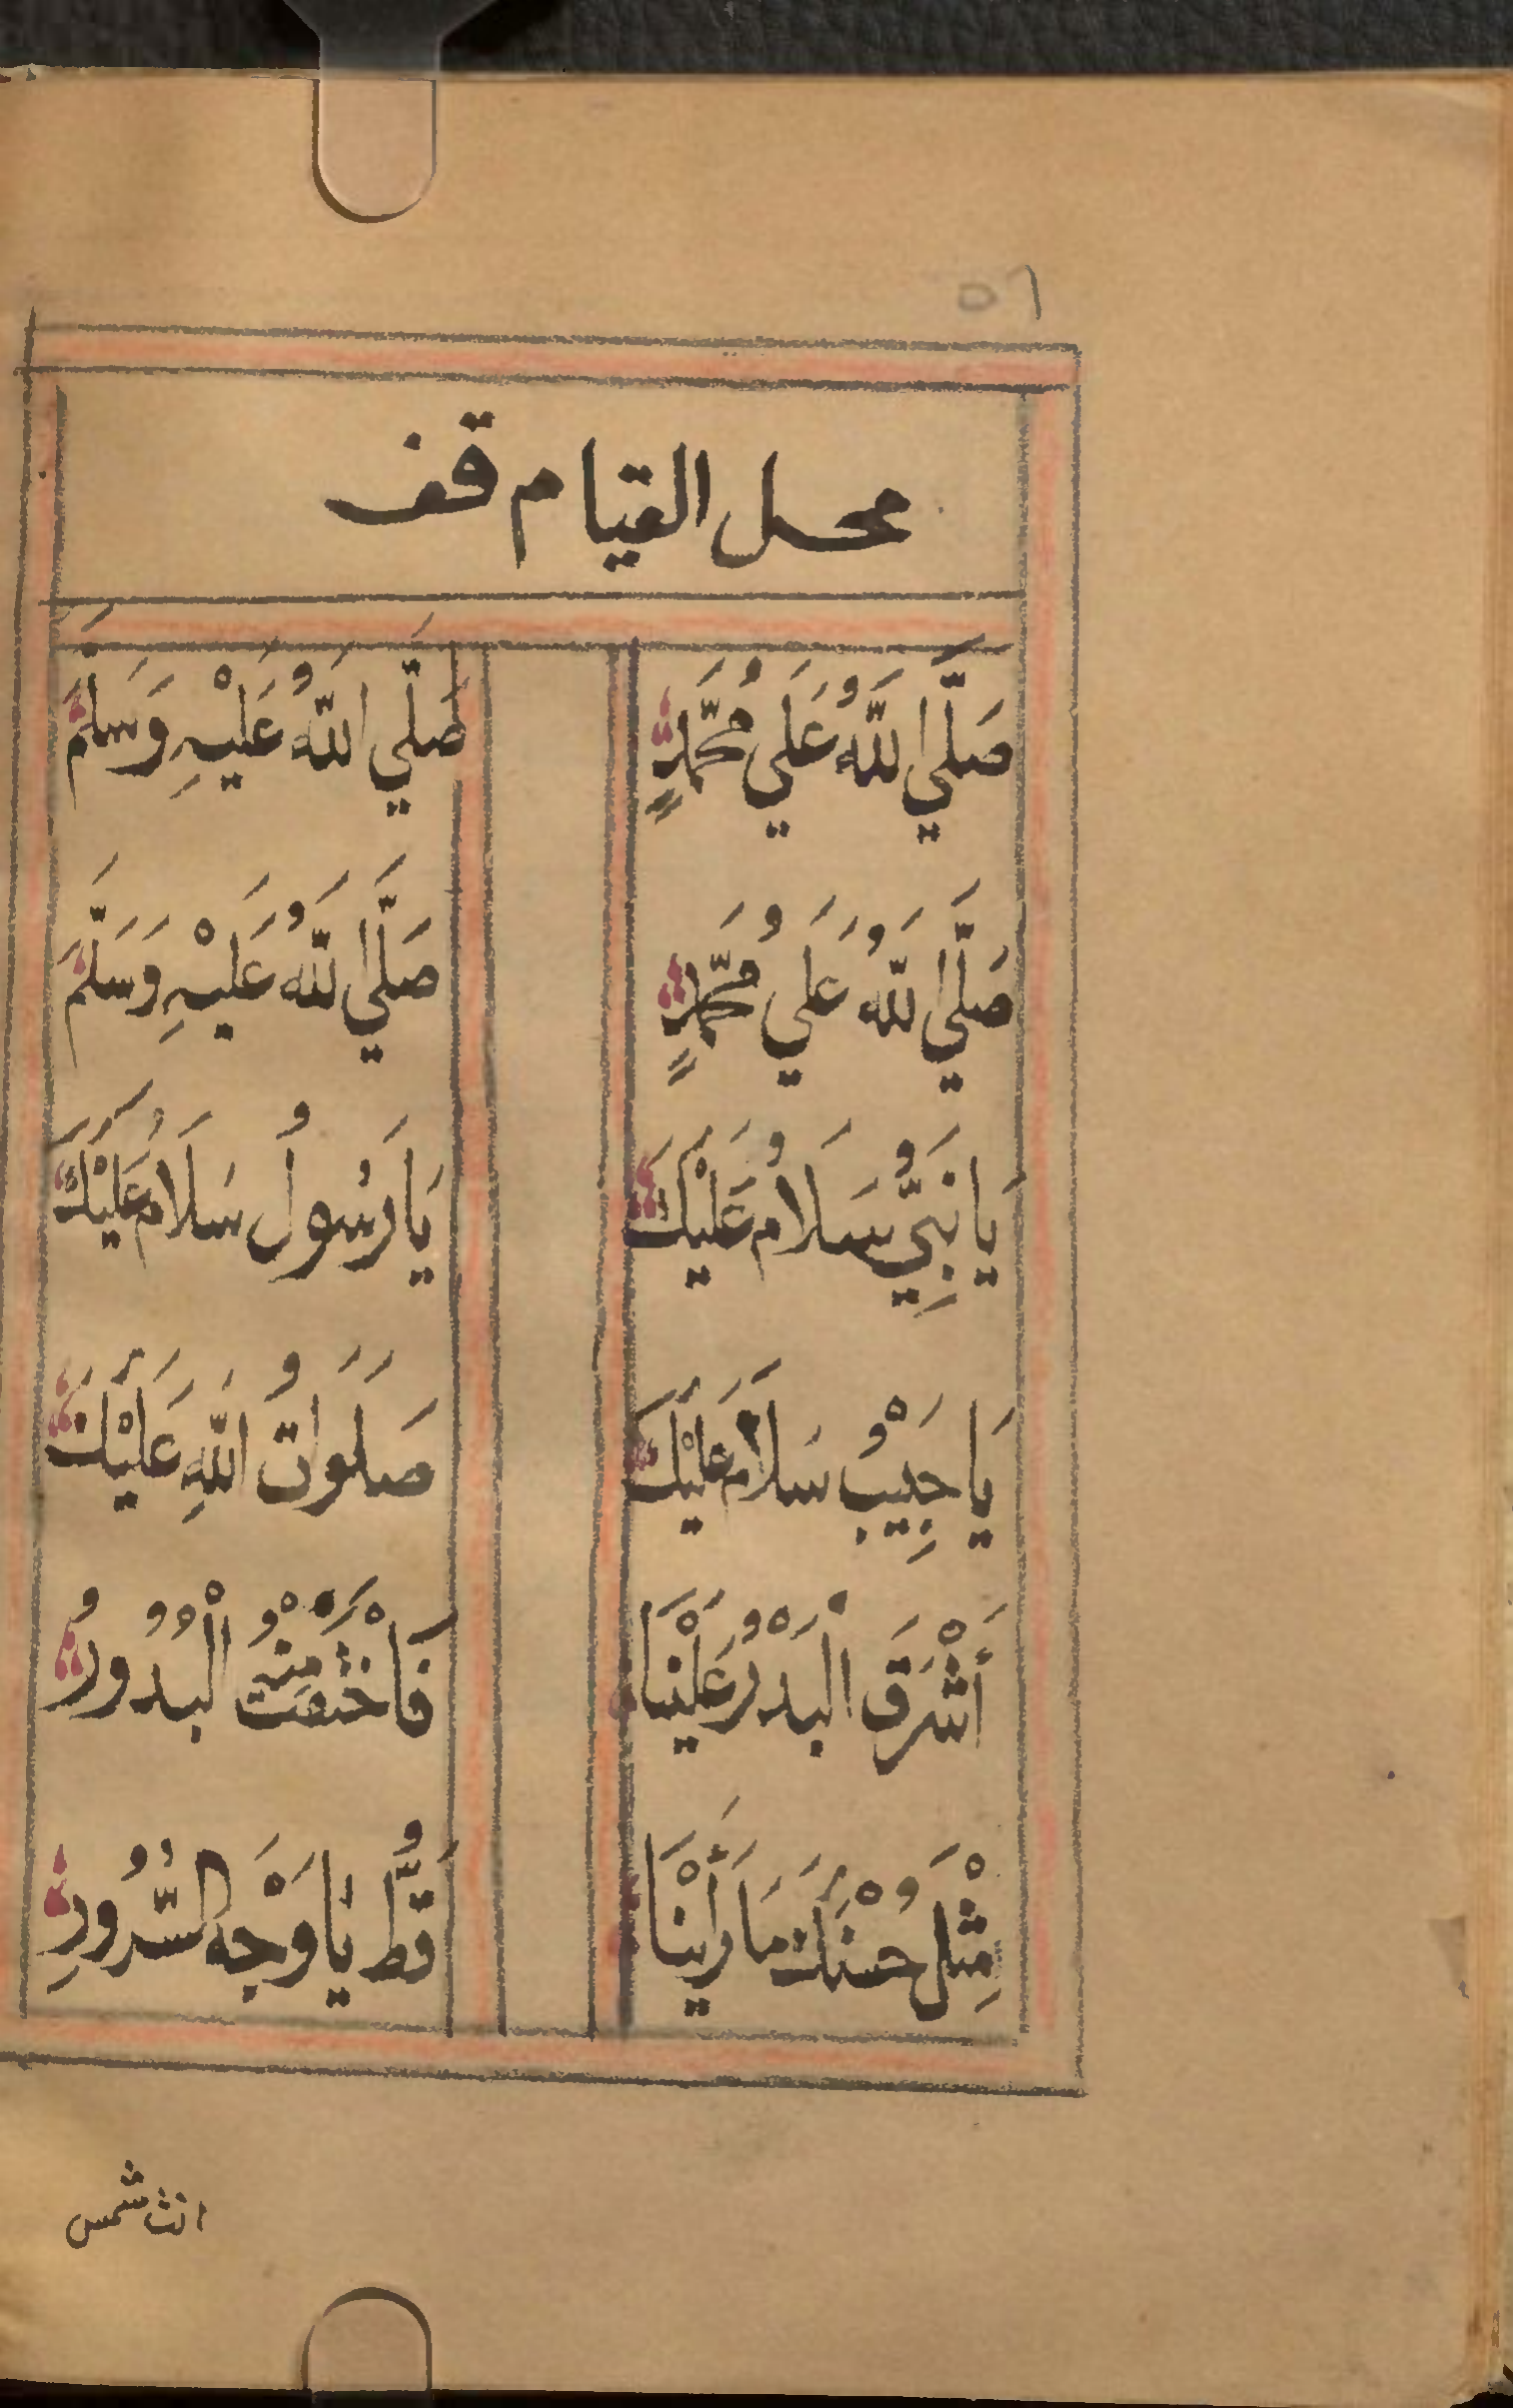 ٥٦
محل القيام قف
صَلَّي اللَّهُ عَلَي مُحَمَّدٍ صَلَّي اللَّهُ عَلَيْهِ وَسَلَّمَ
صَلَّي اللَّهُ عَلَي مُحَمَّدٍ صَلَّي اللَّهُ عَلَيْهِ وَسَلَّمَ
يَا نَبِيُّ سَلَامُ عَلَيْكَ يَا رَسُولُ سَلَامُ عَلَيْكَ
يَا حَبِيْبُ سَلَامُ عَلَيْكَ صَلَوَاتُ اللَّهِ عَلَيْكَ
أَشْرَقَ الْبَدْرُ عَلَيْنَا فَاخْتَفَتْ مِنْهُ الْبُدُورُ
مِثْلَ حُسْنِكْ مَا رَأَيْنَا قَطُّ يَا وَجْهَ السُّرُورِ
انت شمس